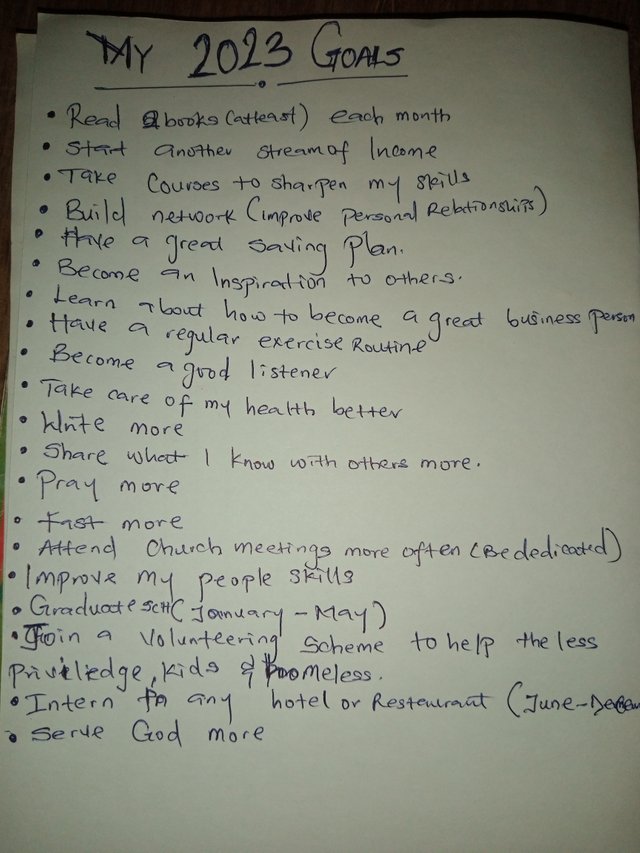 MY 2023 GOALS
• Read 2 books (atleast) each month
• Start another stream of Income
• Take Courses to sharpen my skills
• Build network (improve personal Relationships)
• Have a great saving plan.
• Become an Inspiration to others.
• Learn about how to become a great business person
• Have a regular exercise Routine
• Become a good listener
• Take care of my health better
• Write more
• Share what I know with others more.
• Pray more
• Fast more
• Attend Church meetings more often (Be dedicated)
• Improve my people skills
• Graduate SCH (January - May)
• Join a Volunteering Scheme to help the less
priviledge, kids & homeless.
• Intern in any hotel or Restaurant (June-
• Serve God more